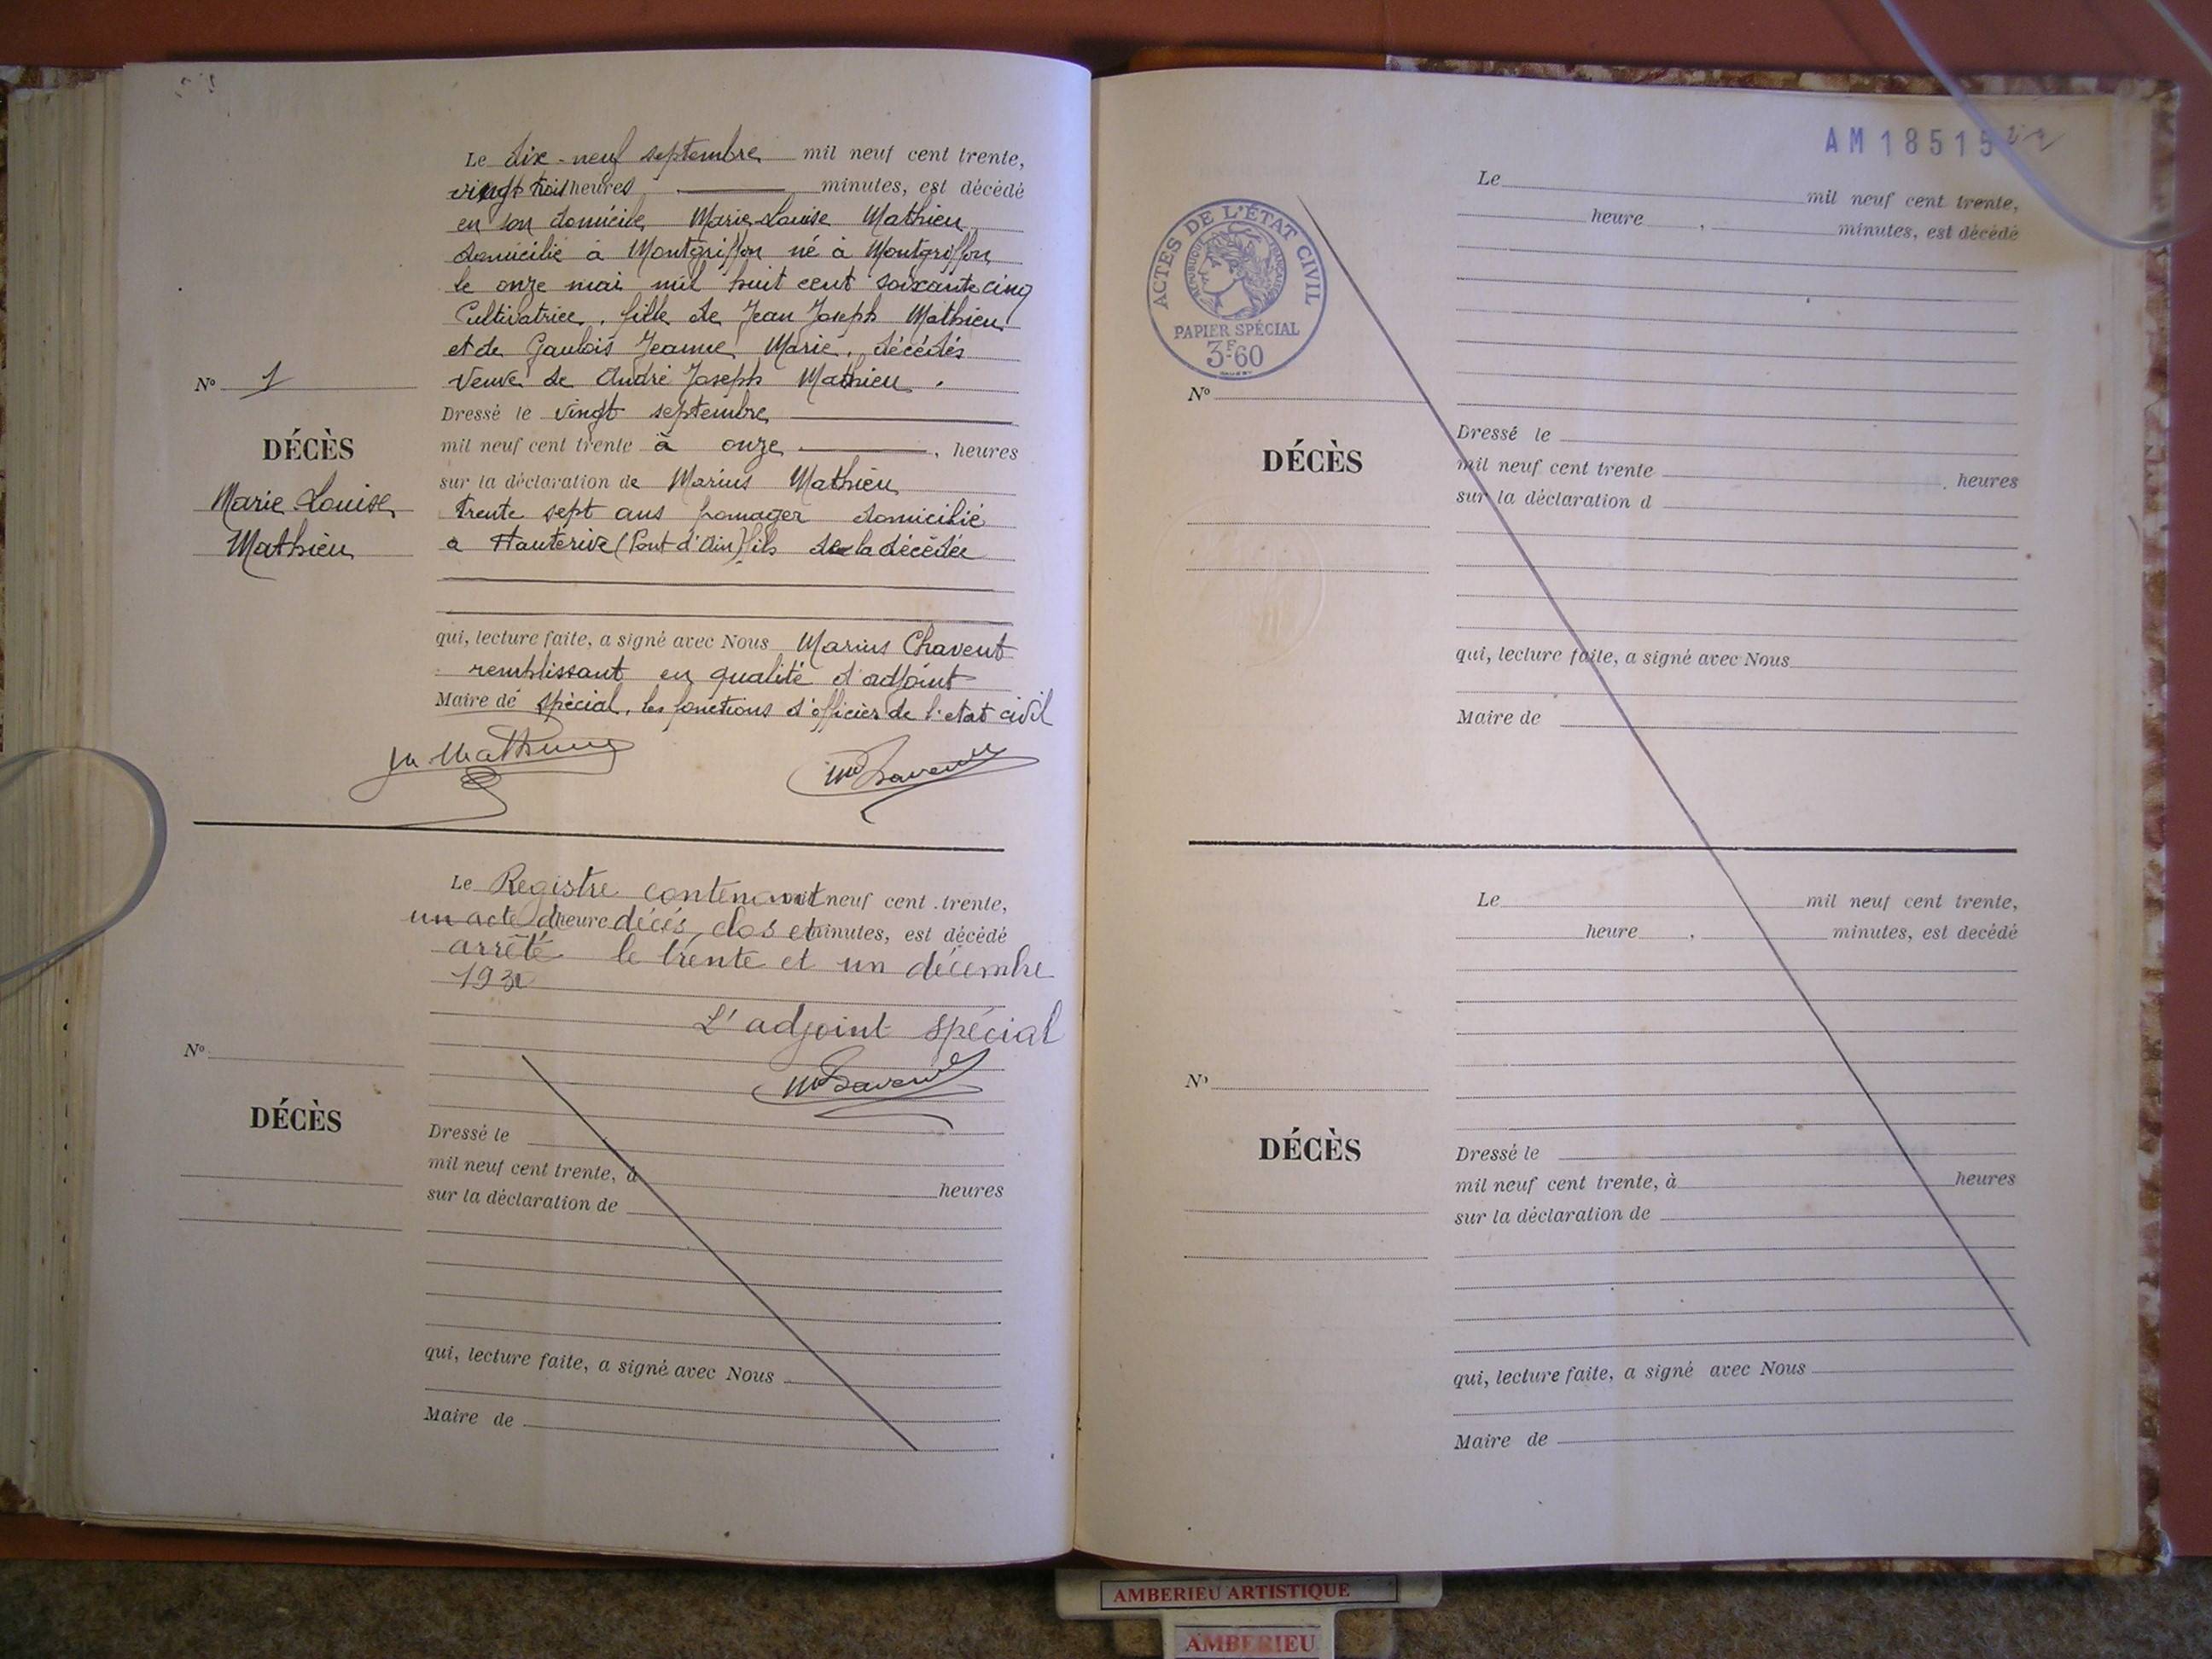 Le dix-neuf septembre mil neuf cent trente,
vingt trois heures minutes, est décédé
en son domicile Marie Louise Mathieu
domicilié à Montgriffon né à Montgriffon
le onze mai mil huit cent soixante cinq
Cultivatrice, fille de Jean Joseph Mathieu
et de Gaulois Jeanne Marie, décédés
Veuve de André Joseph Mathieu.
Nº 1
DÉCÈS
Marie Louise
Mathieu
Dressé le vingt septembre
mil neuf cent trente à onze, heures
sur la déclaration de Marius Mathieu
trente sept ans fromager domicilié
a Hauterive (Pont d'Ain) fils de la décédée
qui, lecture faite, a signé avec Nous Marius Chavent
remplissant en qualité d'adjoint
Maire de spécial, les fonctions d'officier de l'etat civil
Le Registre contenant neuf cent trente,
un acte de heure décés, clos et minutes, est décédé
arrêté le trente et un décembre
1930
L'adjoint spécial
Nº
DÉCÈS
Dressé le
mil neuf cent trente, à heures
sur la déclaration de
qui, lecture faite, a signé avec Nous
Maire de
AM 18515
ACTES DE L'ÉTAT CIVIL
RÉPUBLIQUE FRANÇAISE
PAPIER SPÉCIAL
3F60
Le mil neuf cent trente,
heure , minutes, est décédé
Nº
DÉCÈS
Dressé le
mil neuf cent trente , heures
sur la déclaration d
qui, lecture faite, a signé avec Nous
Maire de
Le mil neuf cent trente,
heure , minutes, est decédé
Nº
DÉCÈS
Dressé le
mil neuf cent trente, à heures
sur la déclaration de
qui, lecture faite, a signé avec Nous
Maire de
AMBERIEU ARTISTIQUE
AMBERIEU